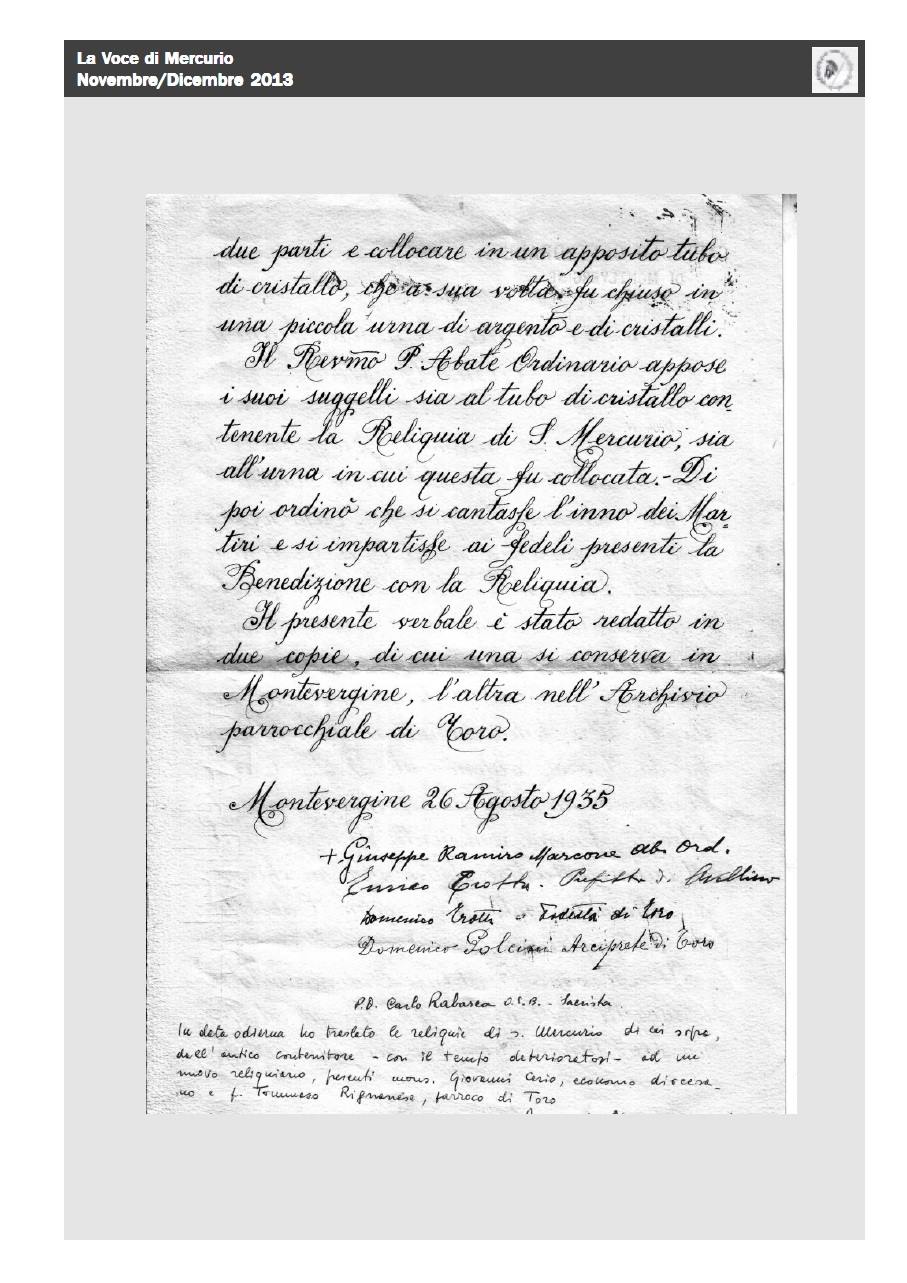 La Voce di Mercurio
Novembre/Dicembre 2013
due parti e collocare in un apposito tubo
di cristallo, che a sua volta fu chiuso in
una piccola urna di argento e di cristalli.
Il Revmo P. Abate Ordinario appose
i suoi suggelli sia al tubo di cristallo con
tenente la Reliquia di S. Mercurio, sia
all'urna in cui questa fu collocata.- Di
poi ordinò che si cantasse l'inno dei Mar
tiri e si impartisse ai fedeli presenti la
Benedizione con la Reliquia.
Il presente verbale è stato redatto in
due copie, di cui una si conserva in
Montevergine, l'altra nell'Archivio
parrocchiale di Toro.
Montevergine 26 Agosto 1935
+ Giuseppe Ramiro Marcone ab. Ord.
Enrico Trotta. Prefetto di Avellino
Domenico Trotta Podestà di Toro
Domenico Polcini Arciprete di Toro
P.D. Carlo Rabasca O.S.B. - Sacrista
In data odierna ho traslato le reliquie di S. Mercurio di cui sopra,
dall'antico contenitore - con il tempo deterioratosi - ad un
nuovo reliquiario, presenti mons. Giovanni Cerio, economo diocesa-
no e p. Tommaso Rignanese, parroco di Toro